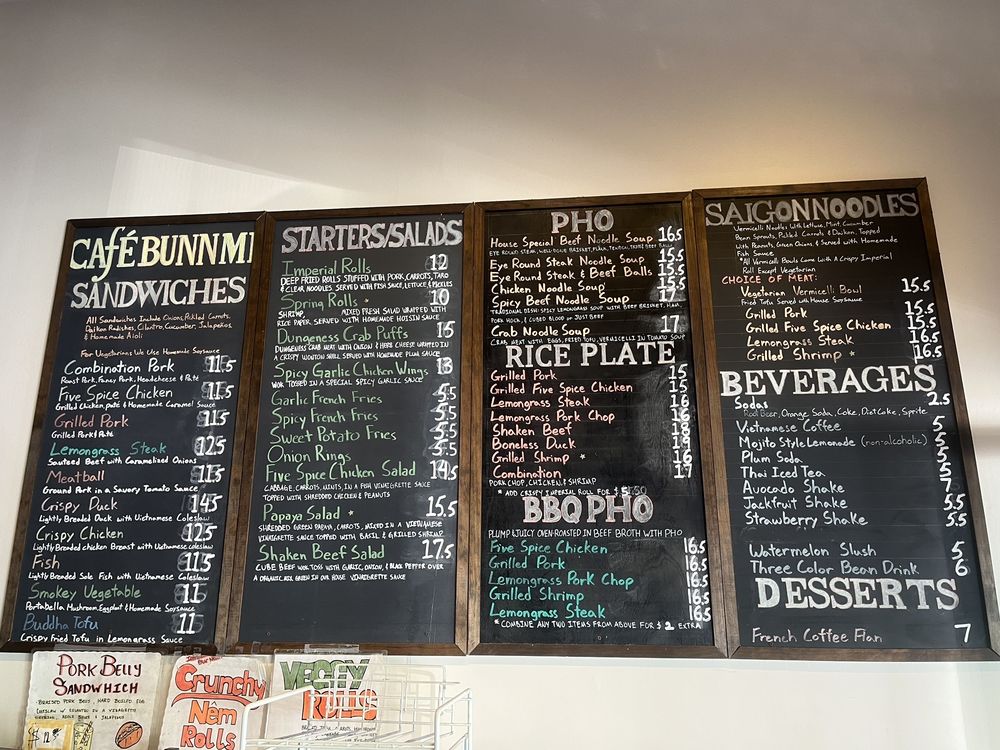 Café BUNN MI
SANDWICHES
All Sandwiches Include Onions, Pickled Carrots,
Daikon Radishes, Cilantro, Cucumber, Jalapeños
& Homemade Aioli
For Vegetarians We Use Homemade Soysauce
Combination Pork 11.5
Roast Pork, Fancy Pork, Headcheese & Paté
Five Spice Chicken 11.5
Grilled Chicken, paté & Homemade Caramel Sauce
Grilled Pork 11.5
Grilled Pork & Paté
Lemongrass Steak 12.5
Sauteed Beef with Caramelized Onions
Meatball 11.5
Ground Pork in a Savory Tomato Sauce
Crispy Duck 14.5
Lightly Breaded Duck with Vietnamese Coleslaw
Crispy Chicken 12.5
Lightly Breaded chicken Breast with Vietnamese coleslaw
Fish 11.5
Lightly Breaded Sole Fish with Vietnamese Coleslaw
Smokey Vegetable 11
Portabella Mushroom, Eggplant & Homemade Soysauce
Buddha Tofu 11
Crispy Fried Tofu in Lemongrass Sauce
STARTERS/SALADS
Imperial Rolls 12
DEEP FRIED ROLLS STUFFED WITH PORK, CARROTS, TARO
& CLEAR NOODLES. SERVED WITH FISH SAUCE, LETTUCE, & PICKLES
Spring Rolls * 10
SHRIMP, MIXED FRESH SALAD WRAPPED WITH
RICE PAPER. SERVED WITH HOMEMADE HOISIN SAUCE
Dungeness Crab Puffs 15
DUNGENESS CRAB MEAT WITH ONION & HERB CHEESE WRAPPED IN
A CRISPY WONTON SHELL SERVED WITH HOMEMADE PLUM SAUCE
Spicy Garlic Chicken Wings 13
WOK TOSSED IN A SPECIAL SPICY GARLIC SAUCE
Garlic French Fries 5.5
Spicy French Fries 5.5
Sweet Potato Fries 5.5
Onion Rings 5.5
Five Spice Chicken Salad 14.5
CABBAGE, CARROTS, MINTS, IN A FISH VINAIGRETTE SAUCE
TOPPED WITH SHREDDED CHICKEN & PEANUTS
Papaya Salad * 15.5
SHREDDED GREEN PAPAYA, CARROTS, MIXED IN A VIETNAMESE
VINAIGRETTE SAUCE TOPPED WITH BASIL & GRILLED SHRIMP
Shaken Beef Salad 17.5
CUBE BEEF WOK TOSS WITH GARLIC, ONION, & BLACK PEPPER OVER
A ORGANIC MIX GREEN IN OUR HOUSE VINAIGRETTE SAUCE
PHO
House Special Beef Noodle Soup 16.5
EYE ROUND STEAK, WELL-DONE BRISKET, FLANK, TENDON, TRIPE BEEF BALLS
Eye Round Steak Noodle Soup 15.5
Eye Round Steak & Beef Balls 15.5
Chicken Noodle Soup 15.5
Spicy Beef Noodle Soup 17
TRADITIONAL DISH! SPICY LEMONGRASS SOUP WITH BEEF BRISKET, HAM,
PORK HOCK, & CUBED BLOOD or JUST BEEF
Crab Noodle Soup 17
CRAB MEAT WITH EGGS, FRIED TOFU, VERMICELLI IN TOMATO SOUP
RICE PLATE
Grilled Pork 15
Grilled Five Spice Chicken 15
Lemongrass Steak 16
Lemongrass Pork Chop 16
Shaken Beef 18
Boneless Duck 19
Grilled Shrimp * 16
Combination 17
PORK CHOP, CHICKEN, & SHRIMP
* ADD CRISPY IMPERIAL ROLL FOR
BBQ PHO
PLUMP & JUICY OVEN-ROASTED IN BEEF BROTH WITH PHO
Five Spice Chicken 16.5
Grilled Pork 16.5
Lemongrass Pork Chop 16.5
Grilled Shrimp 16.5
Lemongrass Steak 16.5
* COMBINE ANY TWO ITEMS FROM ABOVE FOR $2 EXTRA
SAIGON NOODLES
Vermicelli Noodles With Lettuce, Mint, Cucumber
Bean Sprouts, Pickled Carrots & Daikon, Topped
With Peanuts, Green Onions & Served with Homemade
Fish Sauce
*All Vermicelli Bowls Come With A Crispy Imperial
Roll Except Vegetarian
CHOICE OF MEAT:
Vegetarian Vermicelli Bowl 15.5
Fried Tofu Served with House Soysauce
Grilled Pork 15.5
Grilled Five Spice Chicken 15.5
Lemongrass Steak 16.5
Grilled Shrimp * 16.5
BEVERAGES
Sodas 2.5
Root Beer, Orange Soda, Coke, Diet Coke, Sprite
Vietnamese Coffee 5
Mojito Style Lemonade (non-alcoholic) 5
Plum Soda 5
Thai Iced Tea 5
Avocado Shake 7
Jackfruit Shake 5.5
Strawberry Shake 5.5
Watermelon Slush 5
Three Color Bean Drink 6
DESSERTS
French Coffee Flan 7
PORK BELLY
SANDWHICH
BRAISED PORK BELLY, HARD BOILED EGG
COLESLAW w/ CILANTRO IN A VINAIGRETTE
Crunchy
Nêm
Rolls
VEGGY
ROLLS